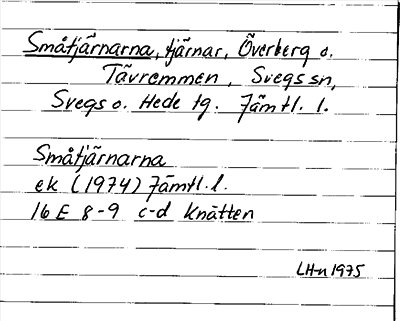 Småtjärnarna, tjärnar, Överberg o.
Tävremmen, Svegs sn,
Svegs o. Hede tg. Jämtl. l.
Småtjärnarna
ek (1974) Jämtl. l.
16 E 8-9 c-d Knätten
LH-n 1975